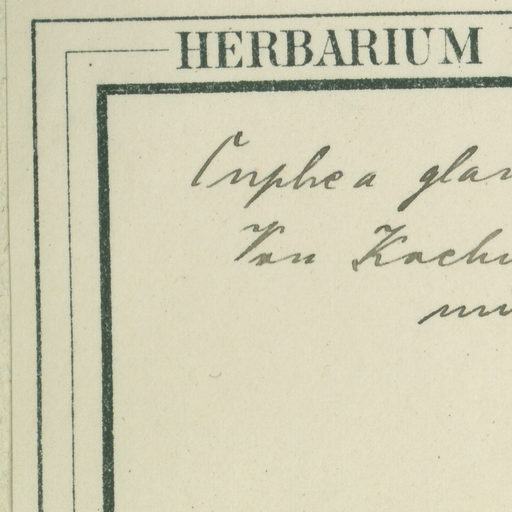 HERBARIUM
Cuphea glan
Von Koehn